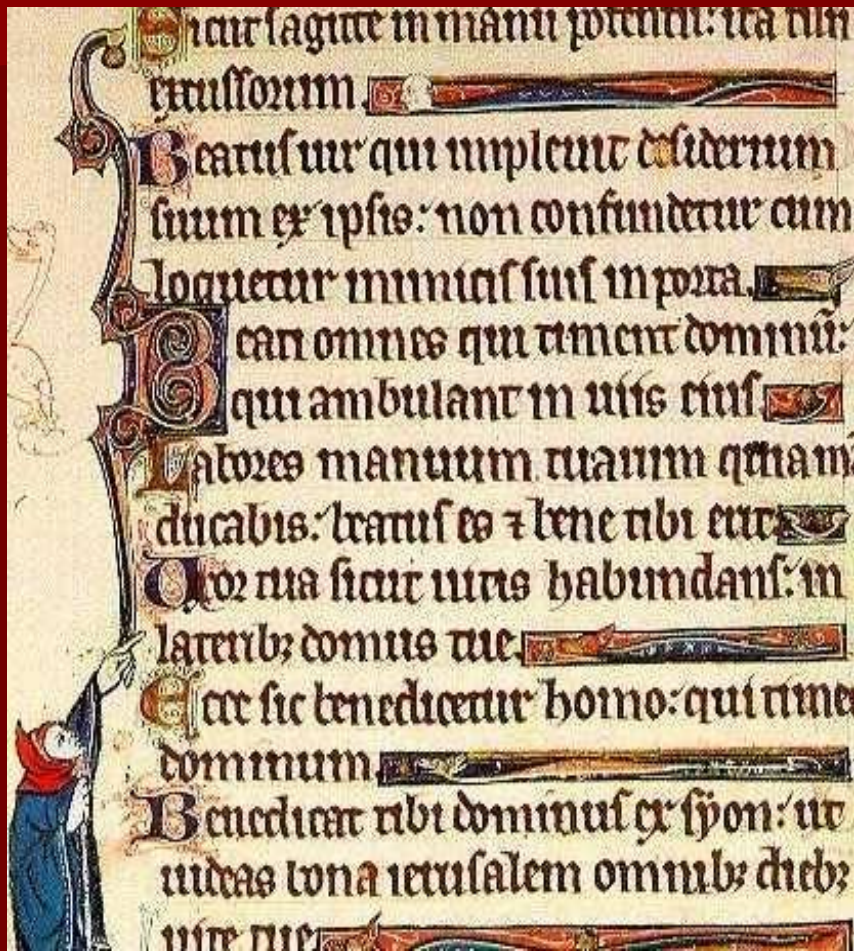 Sicut sagitte in manu potentis: ita filii
excussorum.
Beatus uir qui impleuit desiderium
suum ex ipsis: non confundetur cum
loquetur inimicis suis in porta.
Beati omnes qui timent dominū:
qui ambulant in uiis eius.
Labores manuum tuarum quia man
ducabis: beatus es ⁊ bene tibi erit.
Uxor tua sicut uitis habundans: in
laterib; domus tue.
Ecce sic benedicetur homo: qui time
dominum.
Benedicat tibi dominus ex syon: ut
uideas bona ierusalem omnib; dieb;
uite tue.